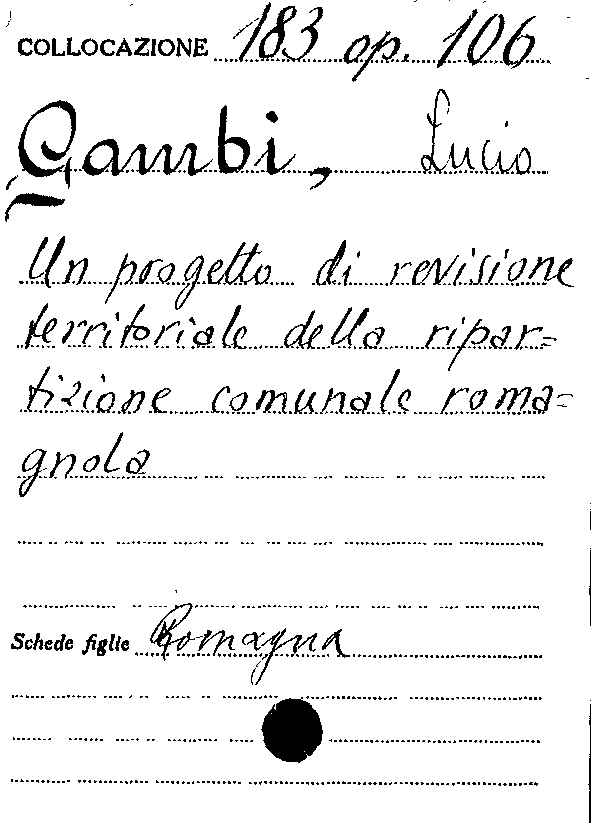 COLLOCAZIONE 183 op. 106
Gambi, Lucio
Un progetto di revisione
territoriale della ripar=
tizione comunale roma=
gnola
Schede figlie Romagna